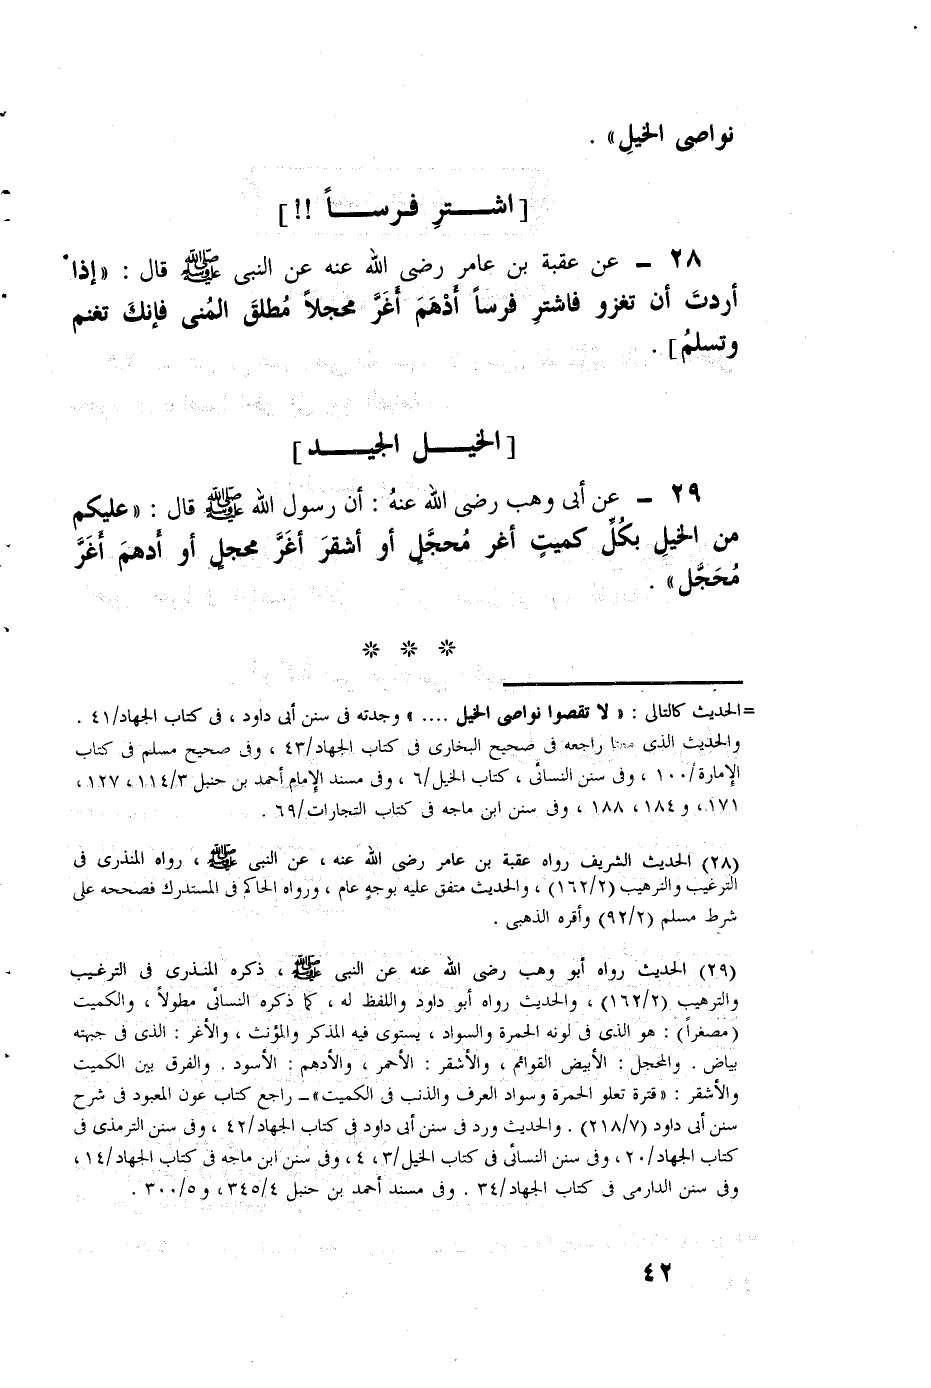 نواصى الخيلِ» .
[ اشــترِ فـرســاً !! ]
٢٨ ــ عن عقبة بن عامر رضى الله عنه عن النبى ﷺ قال : «إذا
أردتَ أن تغزو فاشترِ فرساً أَدْهَمَ أَغَرَّ محجلاً مُطلقَ المُنى فإنكَ تغنم
وتسلمُ] .
[الخيــل الجيــد]
٢٩ ــ عن أبى وهب رضى الله عنهُ : أن رسول الله ﷺ قال : «عليكم
من الخيلِ بكُلِّ كميتٍ أغر مُحجَّلٍ أو أشقرَ أغَرَّ محجلٍ أو أَدهمَ أَغَرَّ
مُحَجَّل» .
* * *
=الحديث كالتالى : « لا تقصوا نواصى الخيل .... » وجدته فى سنن أبى داود ، فى كتاب الجهاد/٤١ .
والحديث الذى معنا راجعه فى صحيح البخارى فى كتاب الجهاد/٤٣ ، وفى صحيح مسلم فى كتاب
الإمارة/١٠٠ ، وفى سنن النسائى ، كتاب الخيل/٦ ، وفى مسند الإمام أحمد بن حنبل ١١٤/٣، ١٢٧ ،
١٧١، و ١٨٤ ، ١٨٨ ، وفى سنن ابن ماجه فى كتاب التجارات/٦٩ .
(٢٨) الحديث الشريف رواه عقبة بن عامر رضى الله عنه ، عن النبى ﷺ ، رواه المنذرى فى
الترغيب والترهيب (١٦٢/٢) ، والحديث متفق عليه بوجهٍ عام ، ورواه الحاكم فى المستدرك فصححه على
شرط مسلم (٩٢/٢) وأقره الذهبى .
(٢٩) الحديث رواه أبو وهب رضى الله عنه عن النبى ﷺ ، ذكره المنذرى فى الترغيب
والترهيب (١٦٢/٢) ، والحديث رواه أبو داود واللفظ له ، كما ذكره النسائى مطولاً ، والكميت
(مصغراً) : هو الذى فى لونه الحمرة والسواد ، يستوى فيه المذكر والمؤنث ، والأغر : الذى فى جبهته
بياض . والمحجل : الأبيض القوائم ، والأشقر : الأحمر ، والأدهم : الأسود . والفرق بين الكميت
والأشقر : «قترة تعلو الحمرة وسواد العرف والذنب فى الكميت»ــ راجع كتاب عون المعبود فى شرح
سنن أبى داود (٢١٨/٧) . والحديث ورد فى سنن أبى داود فى كتاب الجهاد/٤٢ ، وفى سنن الترمذى فى
كتاب الجهاد/٢٠ ، وفى سنن النسائى فى كتاب الخيل/٣، ٤ ، وفى سنن ابن ماجه فى كتاب الجهاد/١٤ ،
وفى سنن الدارمى فى كتاب الجهاد/٣٤ . وفى مسند أحمد بن حنبل ٣٤٥/٤، و ٣٠٠/٥ .
٤٢